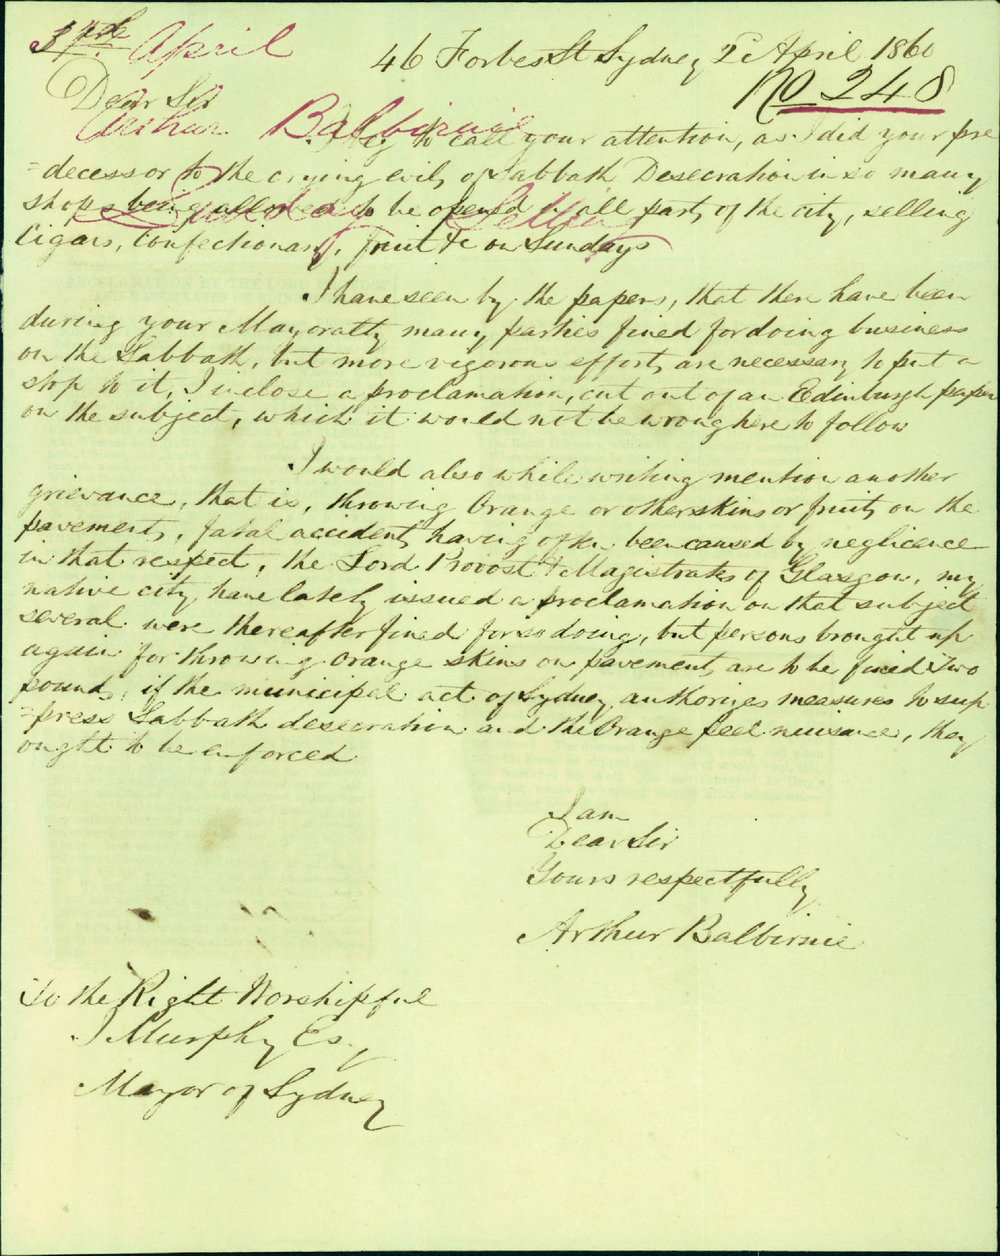 3rd April
46 Forbes St Sydney 2d April 1860
No 248
Dear Sir
Arthur Balbirnie
I beg to call your attention, as I did your pre
=decessor to the crying evils of Sabbath Desecration in so many
shops being allowed to be opened in all parts of the city, selling
Sunday Selling
Cigars, Confectionary, fruit &c on Sundays
I have seen by the papers, that there have been
during your Mayoralty many parties fined for doing business
on the Sabbath, but more vigorous efforts are necessary to put a
stop to it, I inclose a proclamation, cut out of an Edinburgh paper
on the subject, which it would not be wrong here to follow
I would also while writing mention another
grievance, that is, throwing Orange or other skins or fruits on the
pavements, fatal accidents having often been caused by negligence
in that respect, the Lord Provost & Magistrates of Glasgow, my
native city, have lately issued a proclamation on that subject
several were thereafter fined for so doing, but persons brought up
again for throwing orange skins on pavement, are to be fined two
pounds, if the municipal act of Sydney authorizes measures to sup
=press Sabbath desecration and the Orange peel nuisance, they
ought to be enforced
I am
Dear Sir
Yours respectfully
Arthur Balbirnie
To the Right Worshipful
J Murphy Esq
Mayor of Sydney